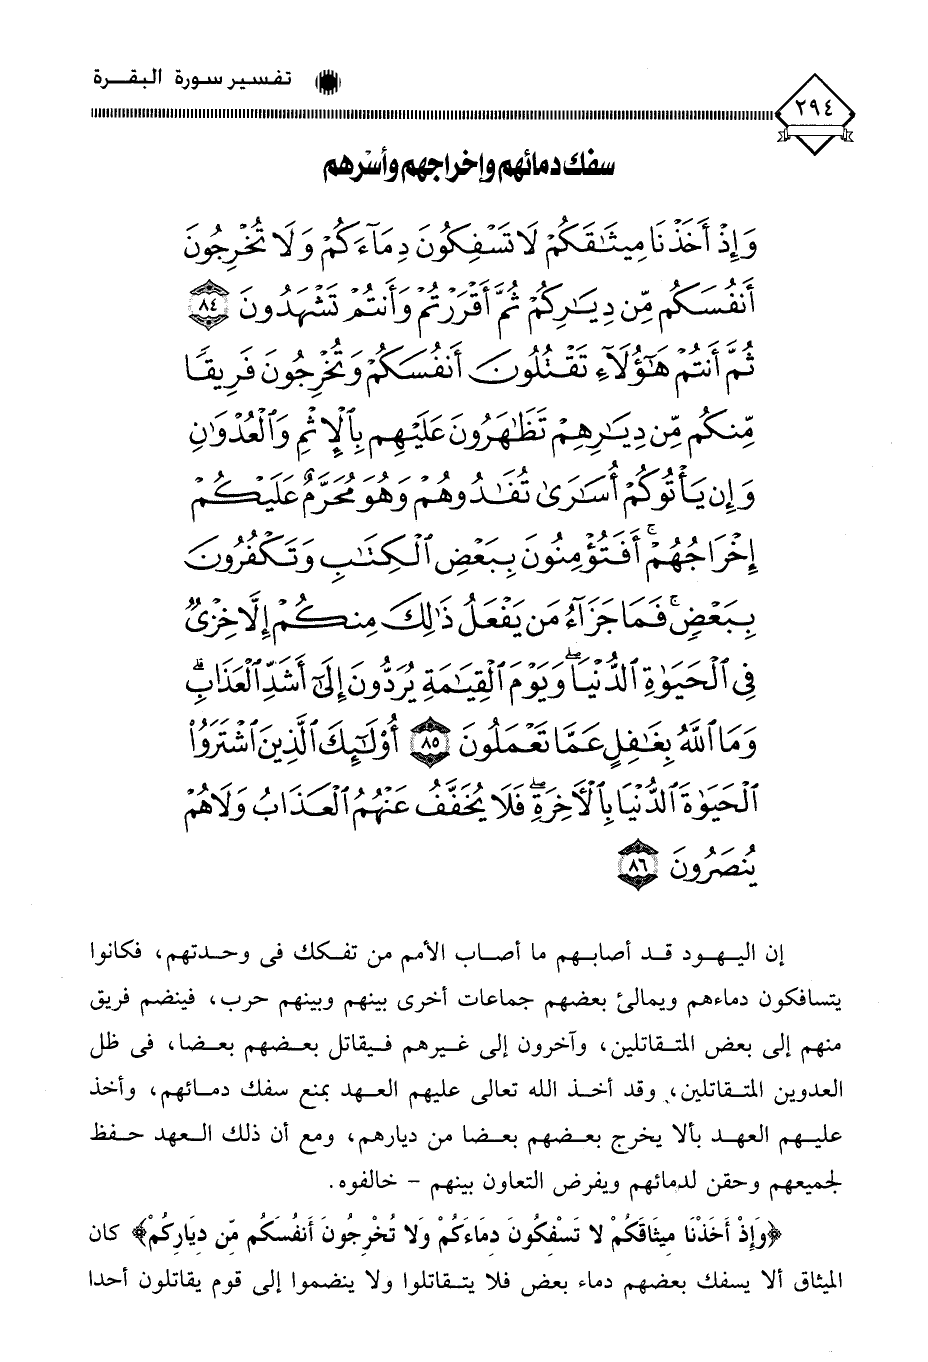 تفسير سورة البقرة
٢٩٤
سفك دمائهم وإخراجهم وأسْرهم
وَإِذْ أَخَذْنَا مِيثَٰقَكُمْ لَا تَسْفِكُونَ دِمَآءَكُمْ وَلَا تُخْرِجُونَ
أَنفُسَكُم مِّن دِيَٰرِكُمْ ثُمَّ أَقْرَرْتُمْ وَأَنتُمْ تَشْهَدُونَ ٨٤
ثُمَّ أَنتُمْ هَٰٓؤُلَآءِ تَقْتُلُونَ أَنفُسَكُمْ وَتُخْرِجُونَ فَرِيقًا
مِّنكُم مِّن دِيَٰرِهِمْ تَظَٰهَرُونَ عَلَيْهِم بِٱلْإِثْمِ وَٱلْعُدْوَٰنِ
وَإِن يَأْتُوكُمْ أُسَٰرَىٰ تُفَٰدُوهُمْ وَهُوَ مُحَرَّمٌ عَلَيْكُمْ
إِخْرَاجُهُمْ ۚ أَفَتُؤْمِنُونَ بِبَعْضِ ٱلْكِتَٰبِ وَتَكْفُرُونَ
بِبَعْضٍ ۚ فَمَا جَزَآءُ مَن يَفْعَلُ ذَٰلِكَ مِنكُمْ إِلَّا خِزْىٌ
فِى ٱلْحَيَوٰةِ ٱلدُّنْيَا ۖ وَيَوْمَ ٱلْقِيَٰمَةِ يُرَدُّونَ إِلَىٰٓ أَشَدِّ ٱلْعَذَابِ ۗ
وَمَا ٱللَّهُ بِغَٰفِلٍ عَمَّا تَعْمَلُونَ ٨٥ أُو۟لَٰٓئِكَ ٱلَّذِينَ ٱشْتَرَوُا۟
ٱلْحَيَوٰةَ ٱلدُّنْيَا بِٱلْأَخِرَةِ ۖ فَلَا يُخَفَّفُ عَنْهُمُ ٱلْعَذَابُ وَلَا هُمْ
يُنصَرُونَ ٨٦
إن اليهود قد أصابهم ما أصاب الأمم من تفكك فى وحدتهم، فكانوا
يتسافكون دماءهم ويمالئ بعضهم جماعات أخرى بينهم وبينهم حرب، فينضم فريق
منهم إلى بعض المتقاتلين، وآخرون إلى غيرهم فيقاتل بعضهم بعضا، فى ظل
العدوين المتقاتلين، وقد أخذ الله تعالى عليهم العهد بمنع سفك دمائهم، وأخذ
عليهم العهد بألا يخرج بعضهم بعضا من ديارهم، ومع أن ذلك العهد حفظ
لجميعهم وحقن لدمائهم ويفرض التعاون بينهم - خالفوه.
﴿وَإِذْ أَخَذْنَا مِيثَاقَكُمْ لا تَسْفِكُونَ دِمَاءَكُمْ وَلا تُخْرِجُونَ أَنفُسَكُم مِّن دِيَارِكُمْ﴾ كان
الميثاق ألا يسفك بعضهم دماء بعض فلا يتقاتلوا ولا ينضموا إلى قوم يقاتلون أحدا